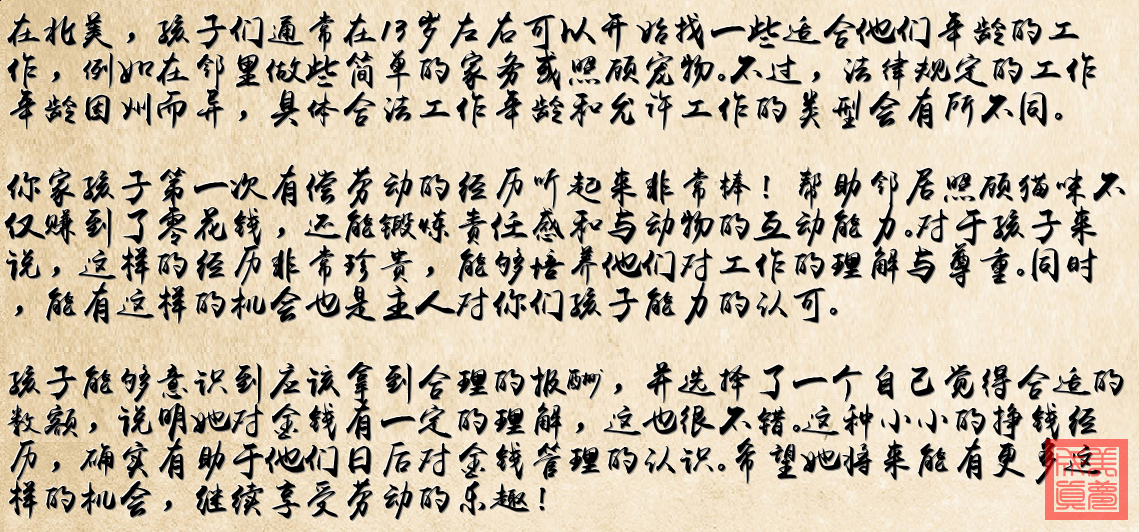 在北美，孩子们通常在13岁左右可以开始找一些适合他们年龄的工
作，例如在邻里做些简单的家务或照顾宠物。不过，法律规定的工作
年龄因州而异，具体合法工作年龄和允许工作的类型会有所不同。
你家孩子第一次有偿劳动的经历听起来非常棒！帮助邻居照顾猫咪不
仅赚到了零花钱，还能锻炼责任感和与动物的互动能力。对于孩子来
说，这样的经历非常珍贵，能够培养他们对工作的理解与尊重。同时
，能有这样的机会也是主人对你们孩子能力的认可。
孩子能够意识到应该拿到合理的报酬，并选择了一个自己觉得合适的
数额，说明她对金钱有一定的理解，这也很不错。这种小小的挣钱经
历，确实有助于他们日后对金钱管理的认识。希望她将来能有更多这
样的机会，继续享受劳动的乐趣！